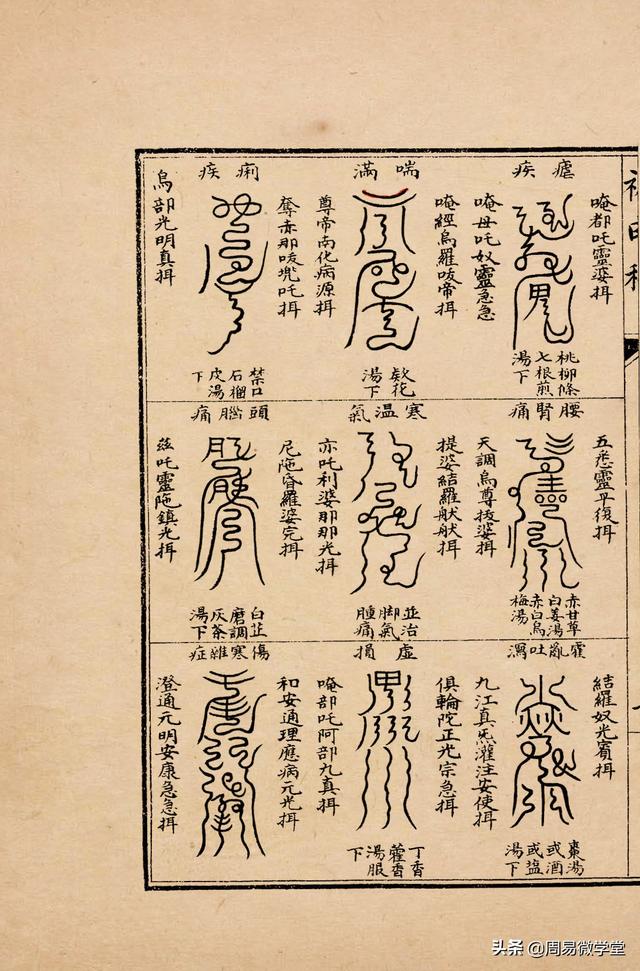 瘧疾
唵都吒靈婆揖
桃柳條
七根煎
湯下
唵母吒奴靈急急
喘滿
唵經烏羅㕹帝揖
欵花
湯下
尊帝南化病源揖
痢疾
奪赤那㕹兠吒揖
禁口
石榴
皮湯
下
烏部光明真揖
腰腎痛
五悉靈平復揖
赤甘草
白姜湯
赤白烏
梅湯
天調烏尊拔婆揖
寒溫氣
提婆結羅㕹㕹揖
並治
脚氣
腫痛
亦吒利婆那那光揖
頭腦痛
尼陁昏羅婆完揖
白芷
磨調
灰茶
湯下
茲吒靈陁鎮光揖
霍亂吐瀉
結羅奴光賓揖
棗湯
或酒
或塩
湯下
九江真炁灌注安使揖
虛損
俱輪陀正光宗急揖
丁香
藿香
湯服
下
唵部吒阿部九真揖
傷寒雜症
和安通理應病元光揖
澄通元明安康急急揖
头条 @周易微学堂